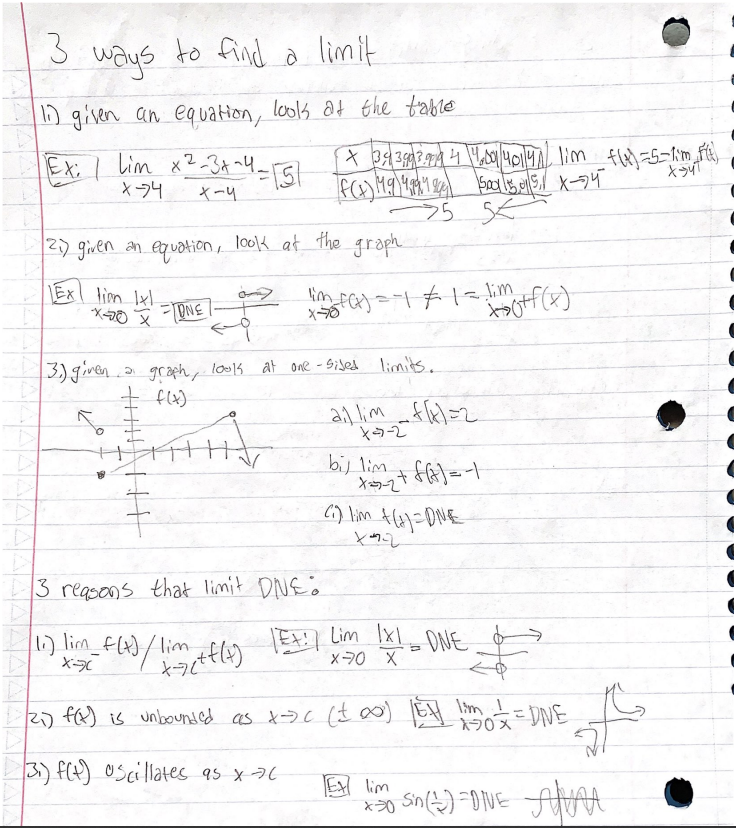 3 ways to find a limit
1.) given an equation, look at the table
Ex: lim x→4 (x²-3x-4)/(x-4) = 5
x | 3.9 | 3.99 | 3.999 | 4 | 4.001 | 4.01 | 4.1
f(x) | 4.9 | 4.99 | 4.999 | | 5.001 | 5.01 | 5.1
→5 5←
lim x→4⁻ f(x)=5=lim x→4⁺ f(x)
2.) given an equation, look at the graph
Ex lim x→0 |x|/x = DNE
lim x→0⁻ f(x) = -1 ≠ 1 = lim x→0⁺ f(x)
3.) given a graph, look at one-sided limits.
f(x)
a.) lim x→-2⁻ f(x)=2
b.) lim x→-2⁺ f(x)=-1
c.) lim x→-2 f(x)=DNE
3 reasons that limit DNE:
1.) lim x→c⁻ f(x) / lim x→c⁺ f(x) Ex: lim x→0 |x|/x = DNE
2.) f(x) is unbounded as x→c (±∞) Ex lim x→0 1/x = DNE
3.) f(x) oscillates as x→c
Ex lim x→0 sin(1/x)=DNE